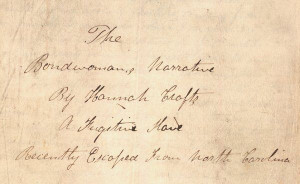 The
Bondwomans Narrative
By Hannah Crafts
A Fugitive Slave
Recently Escaped From North Carolina